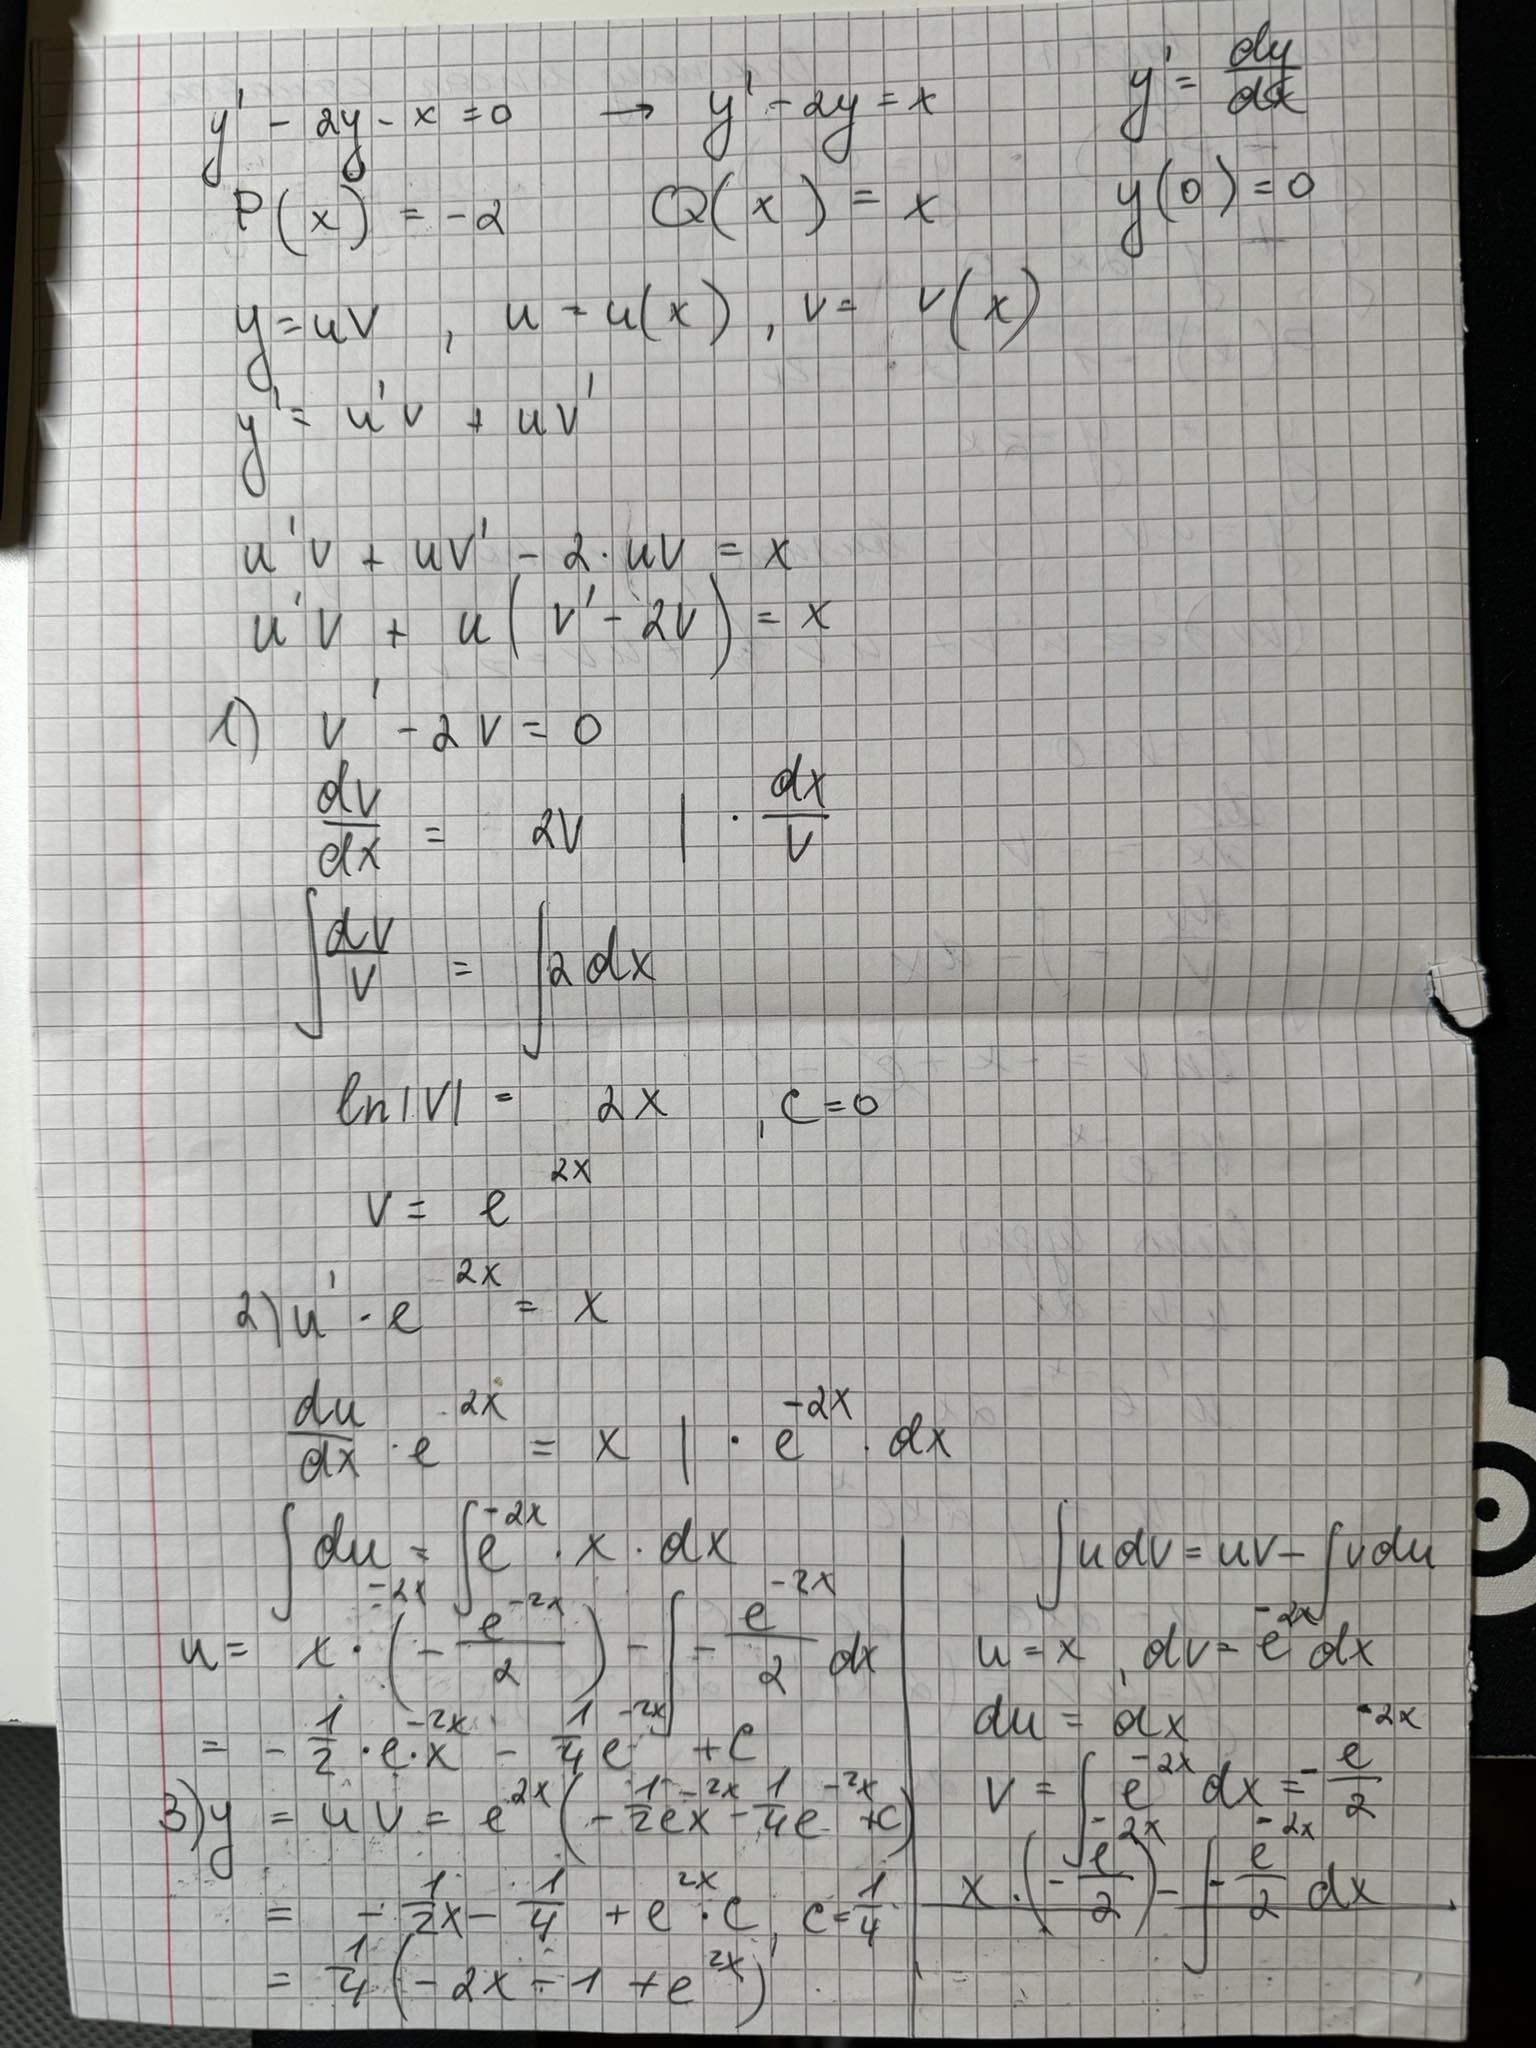 y' - 2y - x = 0 → y' - 2y = x y' = dy/dx
P(x) = -2 Q(x) = x y(0) = 0
y = uv , u = u(x) , v = v(x)
y' = u'v + uv'
u'v + uv' - 2·uv = x
u'v + u(v' - 2v) = x
1) v' - 2v = 0
dv/dx = 2v | · dx/v
∫ dv/v = ∫ 2 dx
ln|v| = 2x , c = 0
v = e^{2x}
2) u' · e^{2x} = x
du/dx · e^{2x} = x | · e^{-2x} · dx
∫ du = ∫ e^{-2x} · x · dx
u = x · (- e^{-2x}/2) - ∫ - e^{-2x}/2 dx
= - 1/2 · e^{-2x} · x - 1/4 e^{-2x} + C
3) y = uv = e^{2x} (- 1/2 e^{-2x} x - 1/4 e^{-2x} + C)
= - 1/2 x - 1/4 + e^{2x} · C , C = 1/4
= 1/4 (-2x - 1 + e^{2x})
∫ u dv = uv - ∫ v du
u = x , dv = e^{-2x} dx
du = dx
v = ∫ e^{-2x} dx = - e^{-2x}/2
x · (- e^{-2x}/2) - ∫ - e^{-2x}/2 dx